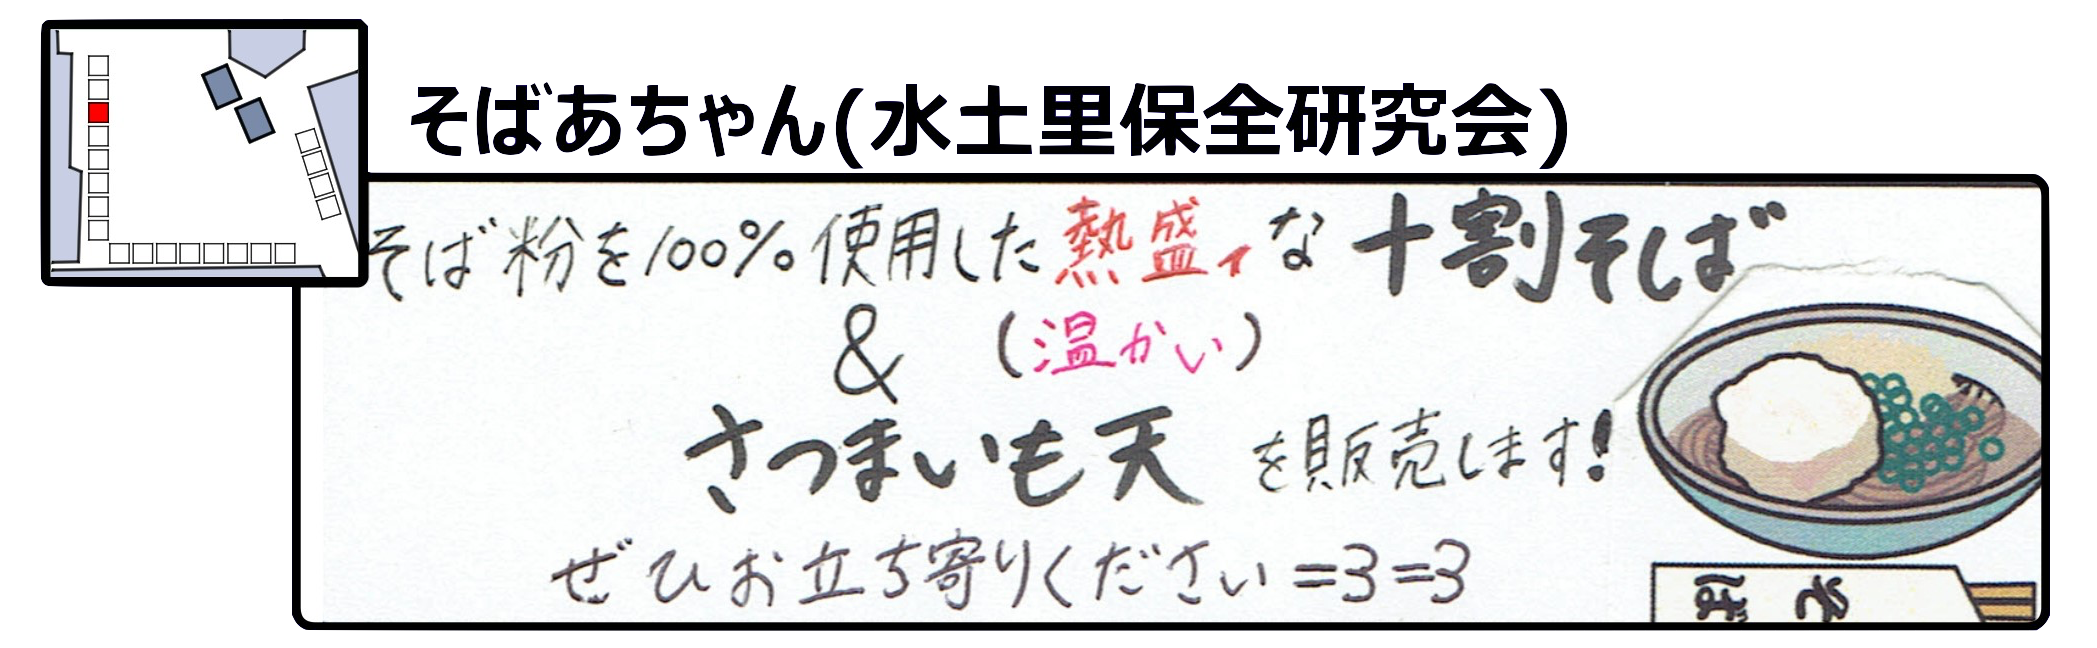 そばあちゃん(水土里保全研究会)
そば粉を100%使用した熱盛ィな十割そば
& (温かい)
さつまいも天を販売します!
ぜひお立ち寄りください=3=3
そば